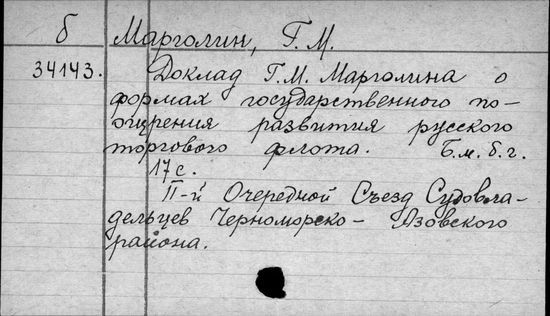 б Марголин, Г. М.
34143. Доклад Г. М. Марголина о
формах государственного по-
ощрения развития русского
торгового флота. Б. м. б. г.
17 с.
II-й Очередной Съезд Судовла-
дельцев Черноморско - Азовского
района.